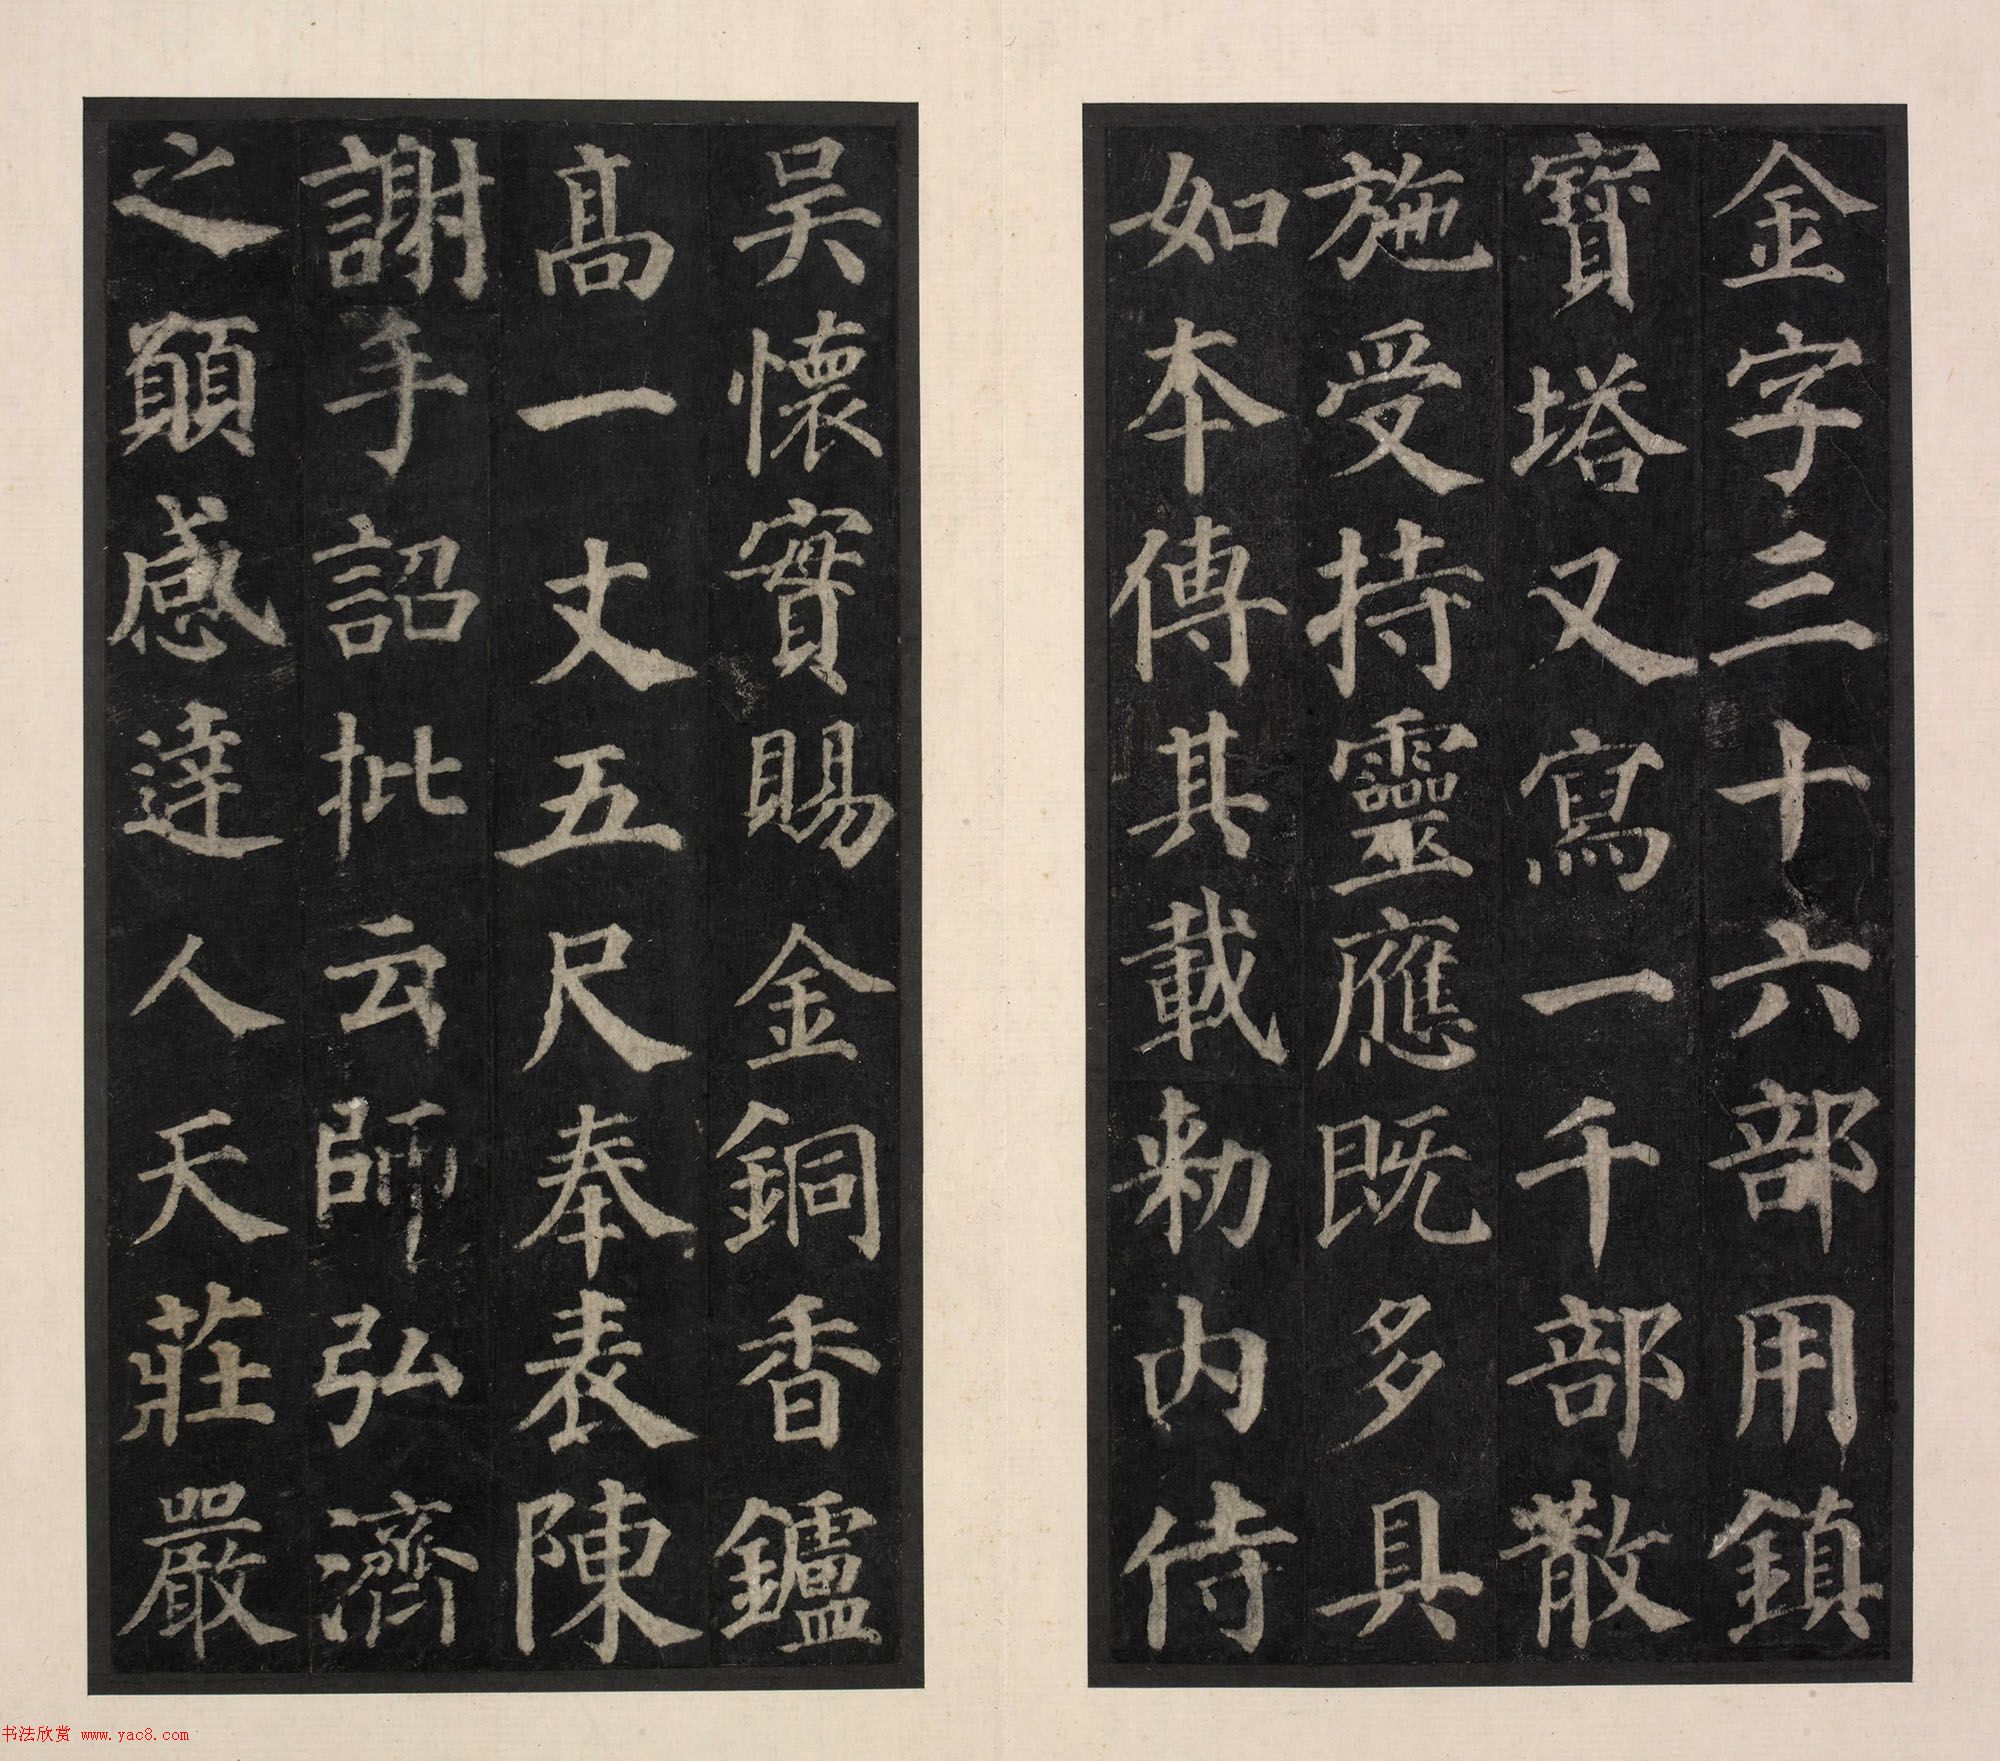 金字三十六部用鎮
寶塔又寫一千部散
施受持靈應既多具
如本傳其載勑内侍
吴懷實賜金銅香鑪
髙一丈五尺奉表陳
謝手詔批云師弘濟
之願感達人天莊嚴
书法欣赏 www.yac8.com